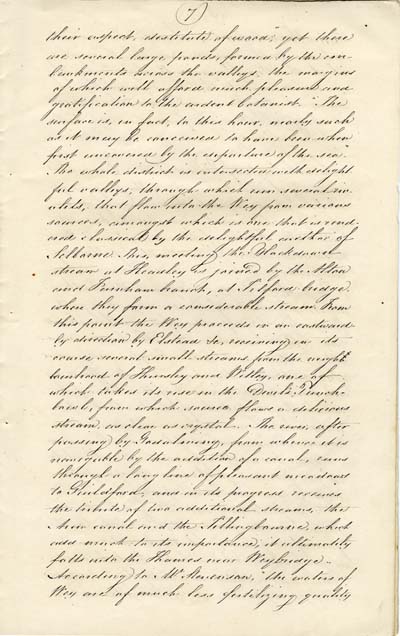 7
their aspect, destitute of wood"; yet there
are several large ponds, formed by the em-
bankments across the valleys, the margins
of which will afford much pleasure and
gratification to the ardent botanist. "The
surface is, in fact, to this hour, nearly such
as it may be conceived to have been when
first uncovered by the departure of the sea."
The whole district is intersected with delight-
ful valleys, through which run several riv-
ulets, that flow into the Wey from various
sources, amongst which is one that is rend-
ered classical by the delightful author of
Selborne. This, meeting the Blackdown
stream at Headley is joined by the Alton
and Farnham branch, at Tilford bridge
where they form a considerable stream. From
this point the Wey proceeds in an eastward-
ly direction by Elstead &c, receiving in its
course several small streams from the neighb-
ourhood of Thursley and Witley, one of
which takes its rise in the Devil's Punch-
bowl, from which source flows a delicious
stream, as clear as crystal. The river, after
passing by Godalming, from whence it is
navigable by the addition of a canal, runs
through a long line of pleasant meadows
to Guildford, and in its progress receives
the tribute of two additional streams, the
Arun canal and the Tillingbourne, which
adds much to its importance, it ultimately
falls into the Thames near Weybridge.
According to Mr Stevenson, "the waters of
Wey are of much less fertilizing quality